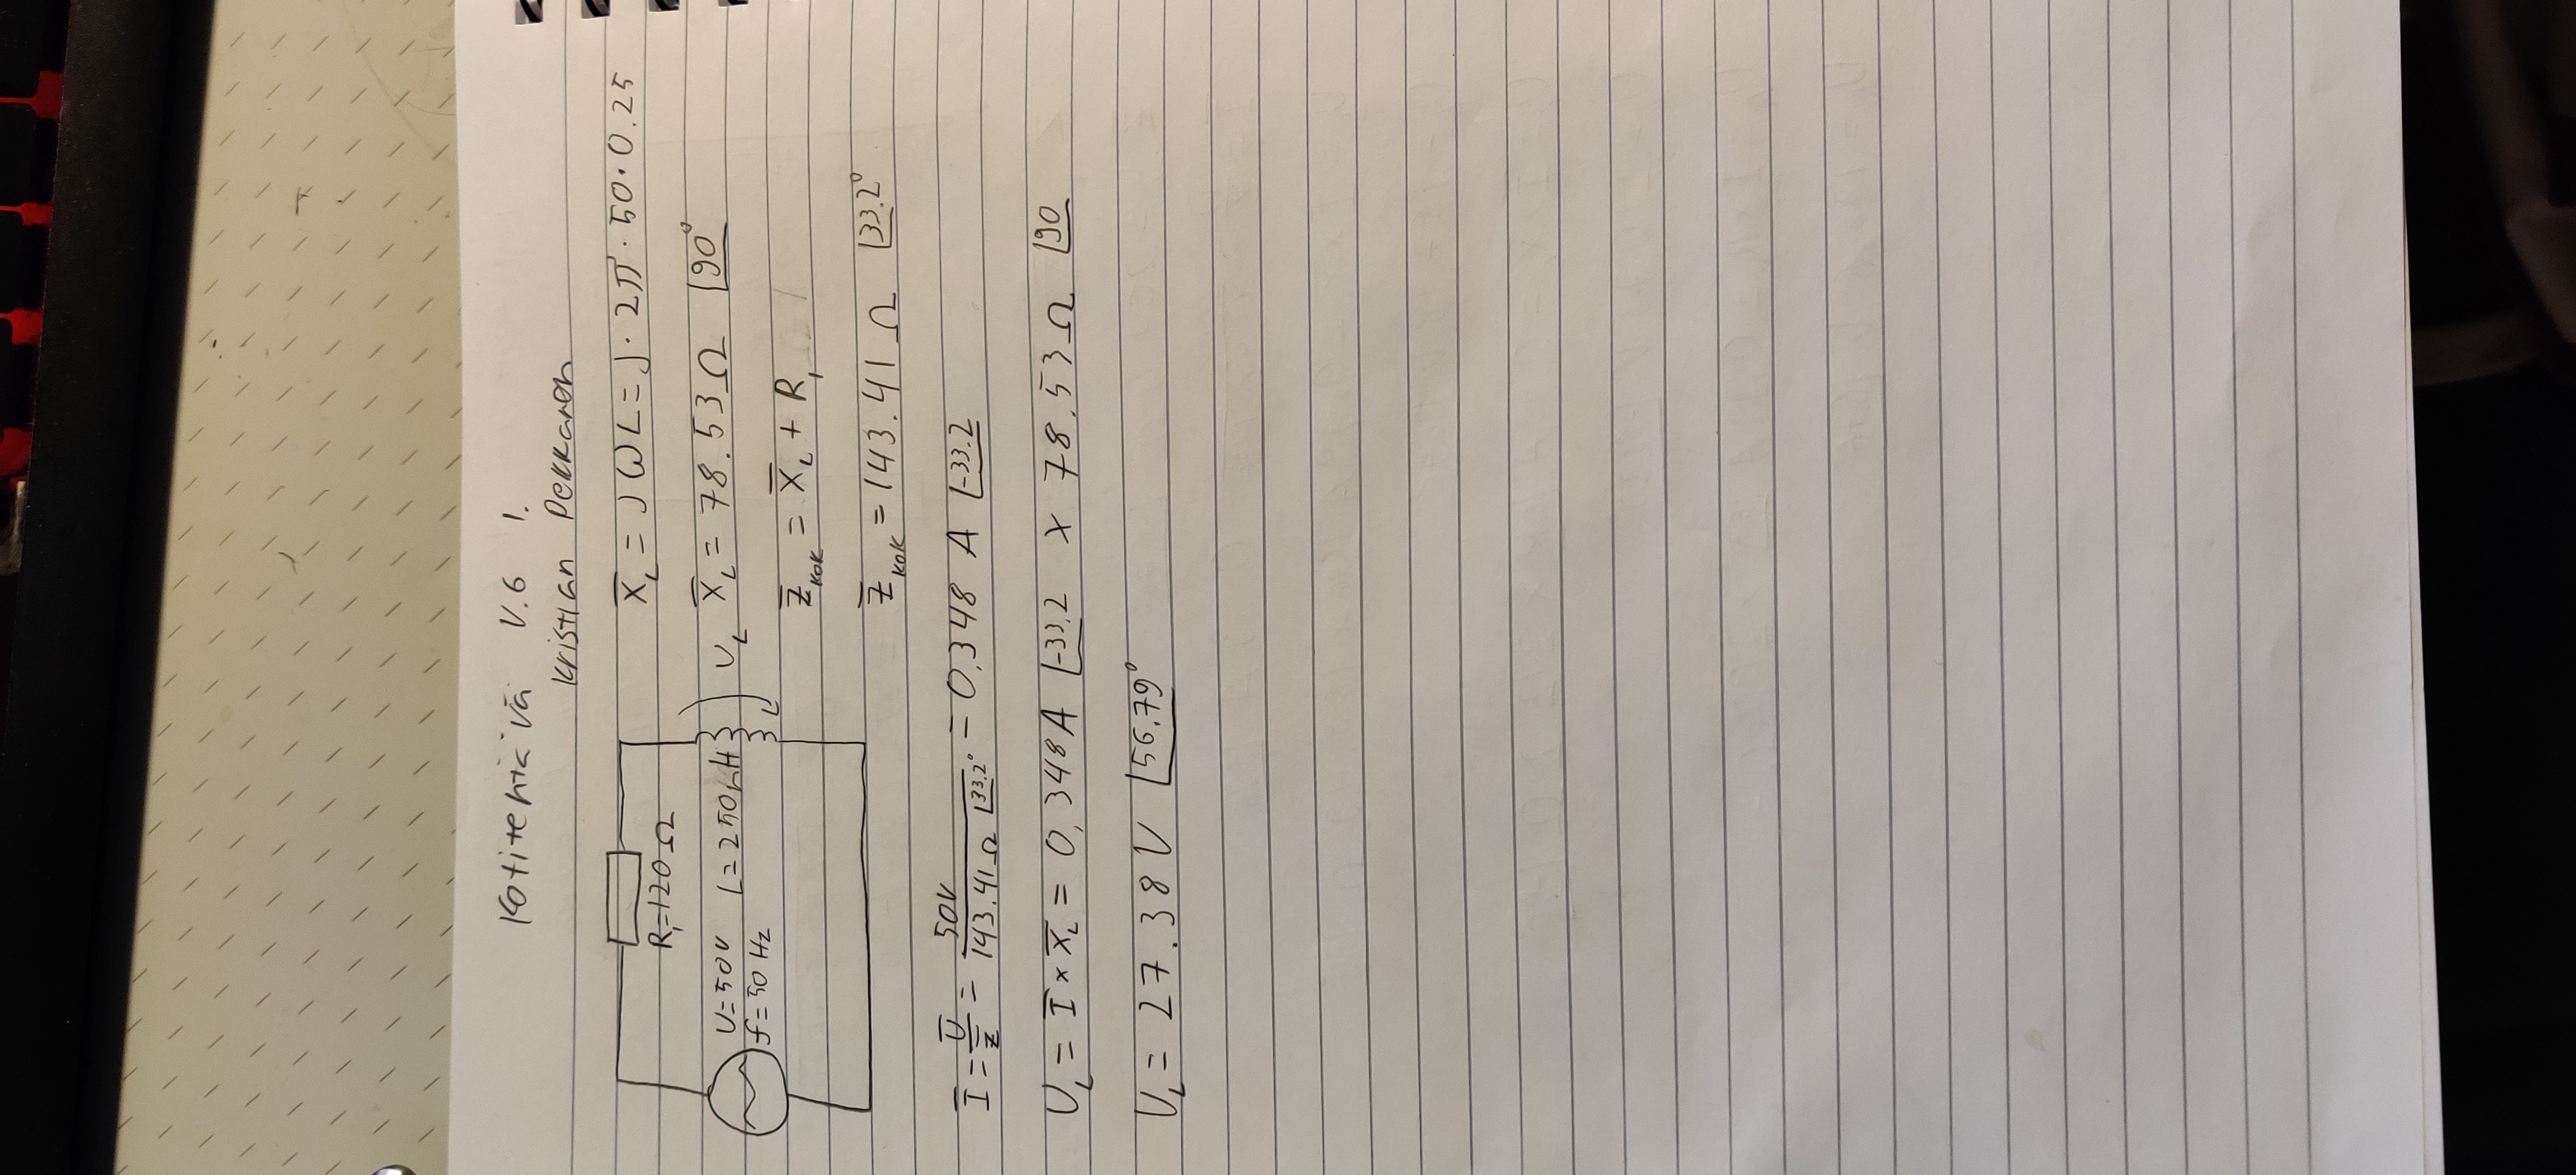 Kotitehtävä V.6 1.
Kristian Pekkaren
R₁=120 Ω
U=50V
f=50 Hz
L=250mH
U_L
X̅_L = jωL = j · 2π · 50 · 0.25
X̅_L = 78.53 Ω ∠90°
Z̅_kok = X̅_L + R₁
Z̅_kok = 143.41 Ω ∠33.2°
I̅ = U̅/Z̅ = 50V/143.41 Ω ∠33.2° = 0,348 A ∠-33.2
U_L = I̅ × X̅_L = 0,348A ∠-33.2 × 78.53 Ω ∠90
U_L = 27.38 V ∠56.79°